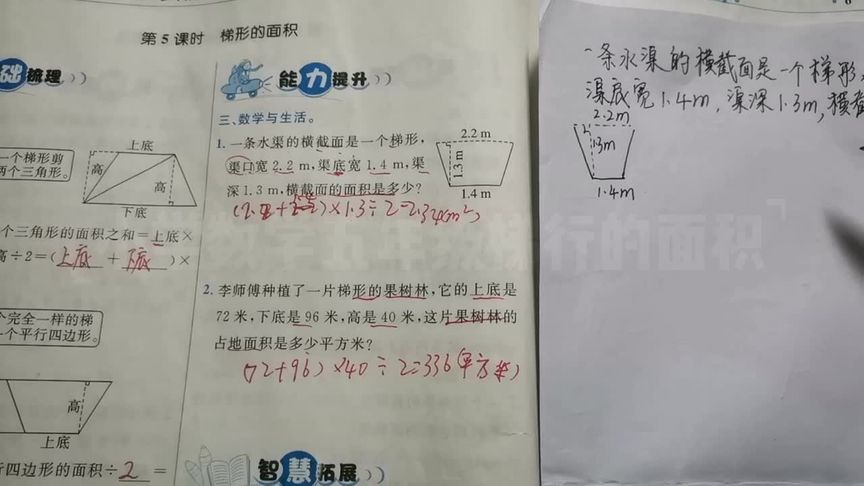 第5课时 梯形的面积
础梳理
一个梯形剪
两个三角形。
上底
高
高
下底
个三角形的面积之和=上底×
高÷2=(上底+下底)×
个完全一样的梯
一个平行四边形。
高
上底
行四边形的面积÷2=
能力提升
三、数学与生活。
1. 一条水渠的横截面是一个梯形,
渠口宽2.2 m,渠底宽1.4 m,渠
深1.3 m,横截面的面积是多少?
2.2 m
1.3 m
1.4 m
×1.3÷2=2.34(m²)
2. 李师傅种植了一片梯形的果树林,它的上底是
72米,下底是96米,高是40米,这片果树林的
占地面积是多少平方米?
(72+96)×40÷2=336(平方米)
智慧拓展
一条水渠的横截面是一个梯形,
渠底宽1.4m,渠深1.3m,横截
2.2m
1.3m
1.4m